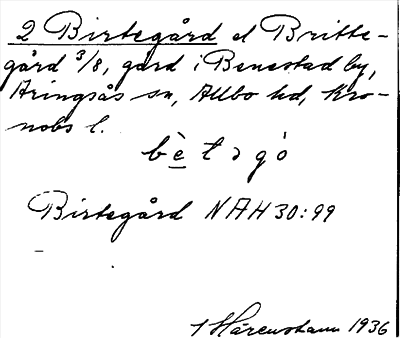 2 Birtegård el Britte-
gård 3/8, gård i Benestad by,
Aringsås sn, Allbo hd, Kro-
nobs l.
bètəgò
Birtegård NAH 30:99
1936